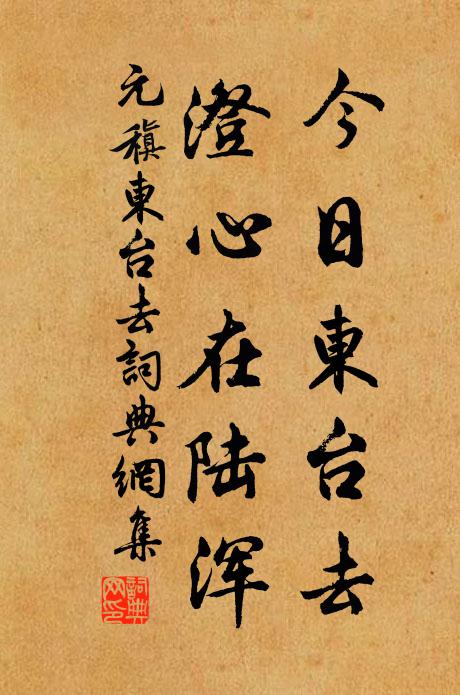 今日東台去
澄心在陆浑
元稹東台去詞典網集
詞典
网印